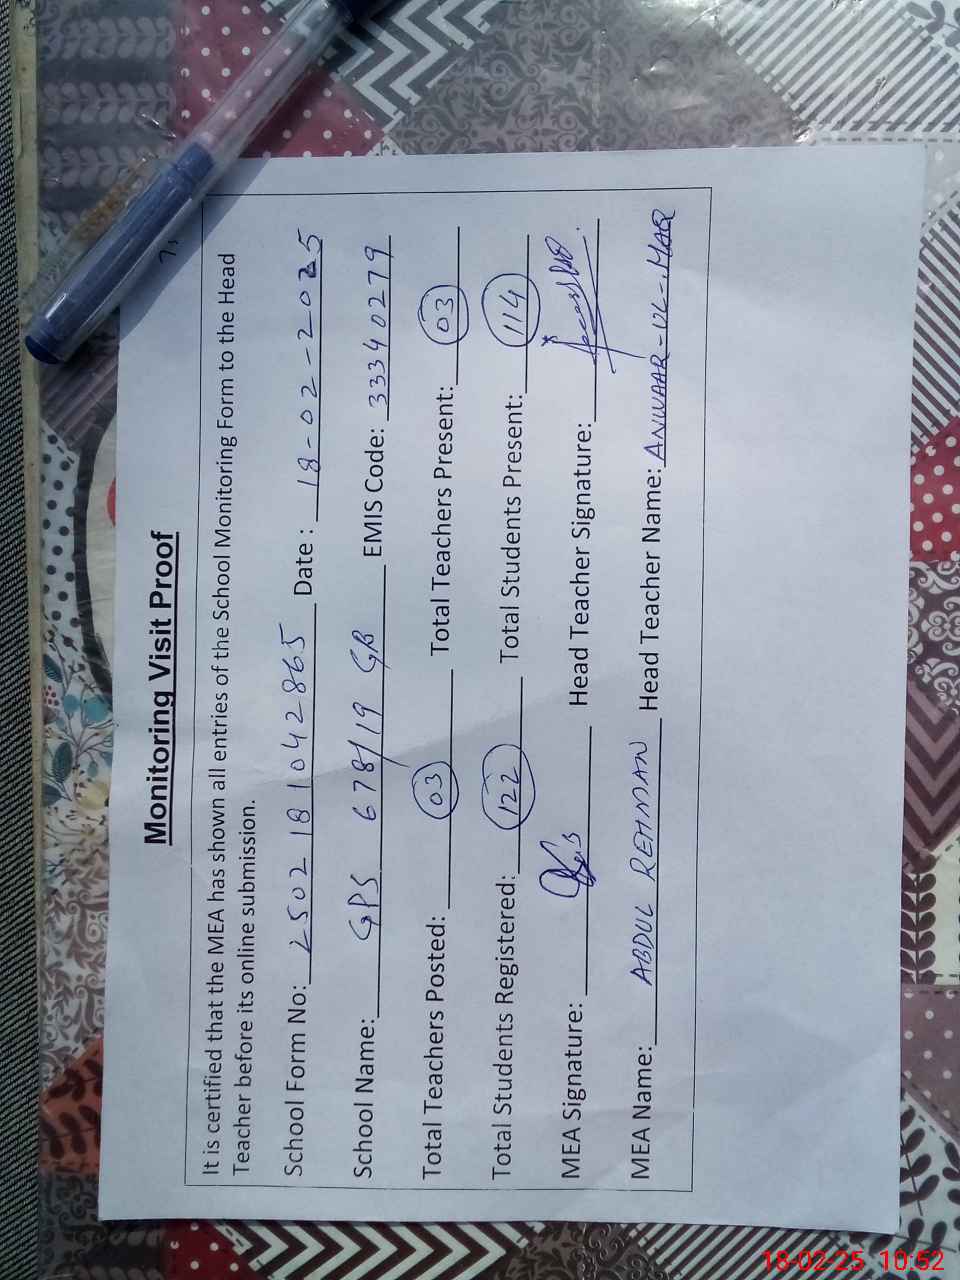 Monitoring Visit Proof
It is certified that the MEA has shown all entries of the School Monitoring Form to the Head
Teacher before its online submission.
School Form No: 2502181042865 Date : 18-02-2025
School Name: GPS 678/19 GB EMIS Code: 33340279
Total Teachers Posted: 03 Total Teachers Present: 03
Total Students Registered: 122 Total Students Present: 114
MEA Signature: Head Teacher Signature:
MEA Name: ABDUL REHMAN Head Teacher Name: ANWAAR-UL-HAQ
18-02-25 10:52